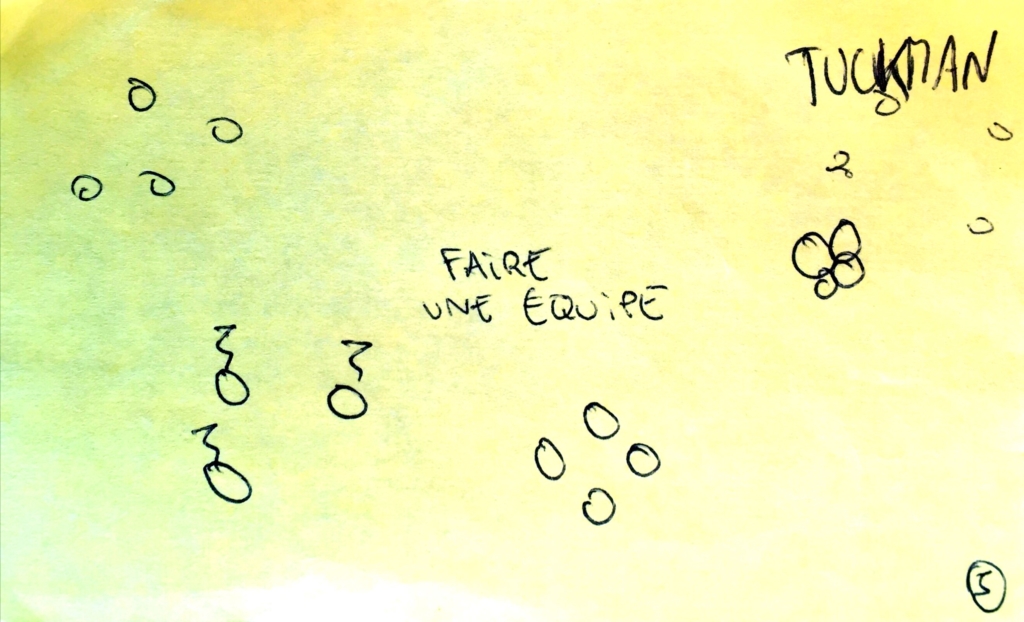 TUCKMAN
FAIRE
UNE EQUIPE
5